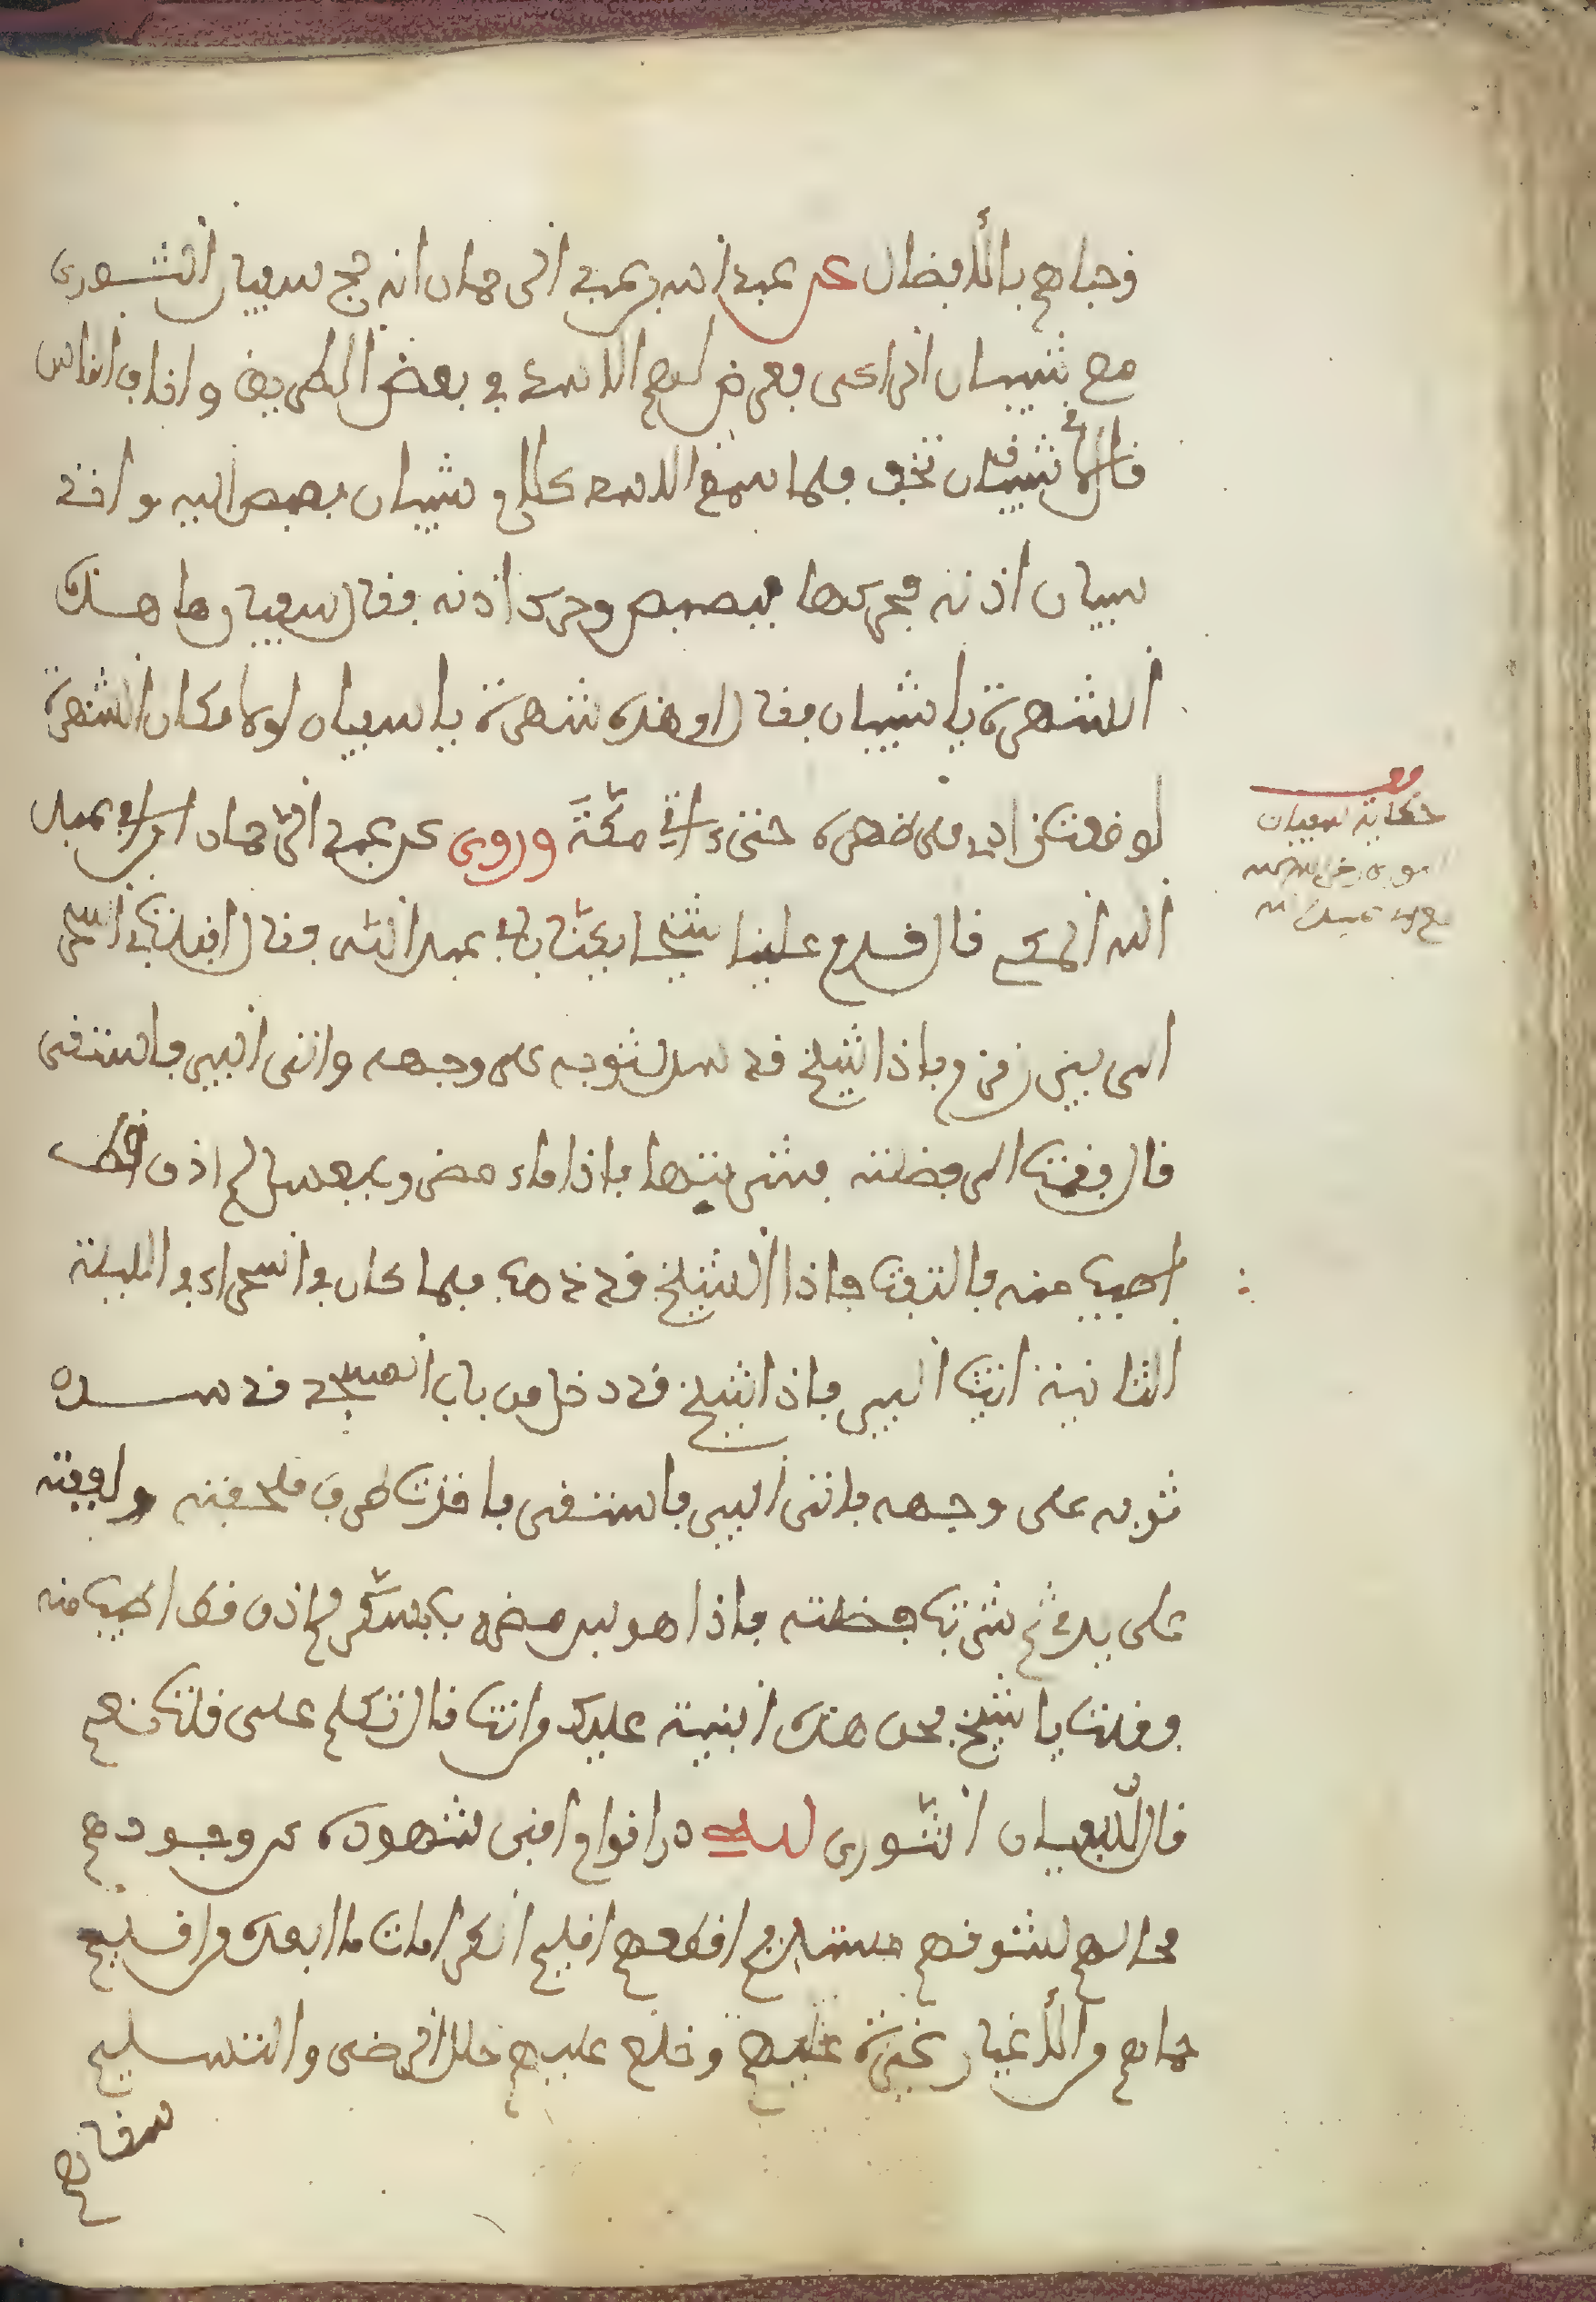 وحباهم بالأفضال عن عبد الله بن عبد الرحمان انه حج سفيان الثوري
مع شيبان الراعي فعرض لهم الاسد في بعض الطريق واخاف الناس
قال لا شيبان تخف فلما سمع الاسد كلام شيبان بصبص اليه واخذ
شيبان اذنه فحركها فبصبص وحرك اذنه فقال سفيان ما هذه
الشهرة يا شيبان فقال او هذه شهرة يا سفيان لولا مكان الشهرة
لوضعت زادي على ظهره حتى ءاتي مكة وروي عن عبد الرحمان ابن ابي عبد
الله المكي قال قدم علينا شيخ يكنى بابي عبد الله فقال اقبلت في السحر
الى بير زمزم فاذا شيخ قد سدل ثوبه على وجهه واتى البير فاستقى
قال فقمت الى فضلته فشربتها فاذا ماء مضروب بعسل لم اذق قط
اطيب منه فالتفت فاذا الشيخ قد ذهب فلما كان في السحر في الليلة
الثانية اتيت البير فاذا شيخ قد دخل من باب المسجد قد سدل
ثوبه على وجهه فاتى البير فاستقى فاخذت طرف ملحفته ولففته
على يدي ثم شربت فضلته فاذا هو لبن مضروب بسكر لم اذق قط اطيب منه
فقلت يا شيخ بحق هذه البنية عليك من انت قال تكتم على قلت نعم
قال سفيان الثوري لله در اقوام افنى شهوده عن وجودهم
محالهم لشوقهم مستلزم اقطعهم اقليم الكرامات ما ابعده من اقليم
حماهم والأغيار نخيرة عليهم وخلع عليهم حلل الرضى والتسليم
سقاهم
قف
حكاية سفيان
الثوري رضي الله عنه